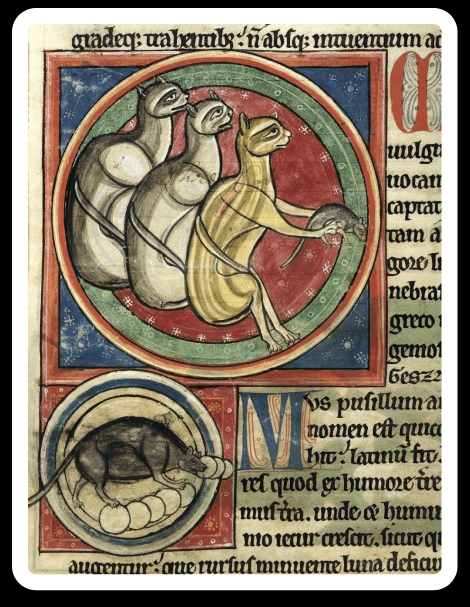 gradeq; trahentib; ñ absq; intuentium ac
M
uulg
uocan
captat
tam a
gore lu
nebras
greco
gemo
M
us pusillum a
nomen est quic
hic: latinū fit.
res quod ex humore t̄re
mus t̄ra. unde & humu
mo iecur crescit. sicut q
augentur: que rursus minuente luna deficiu